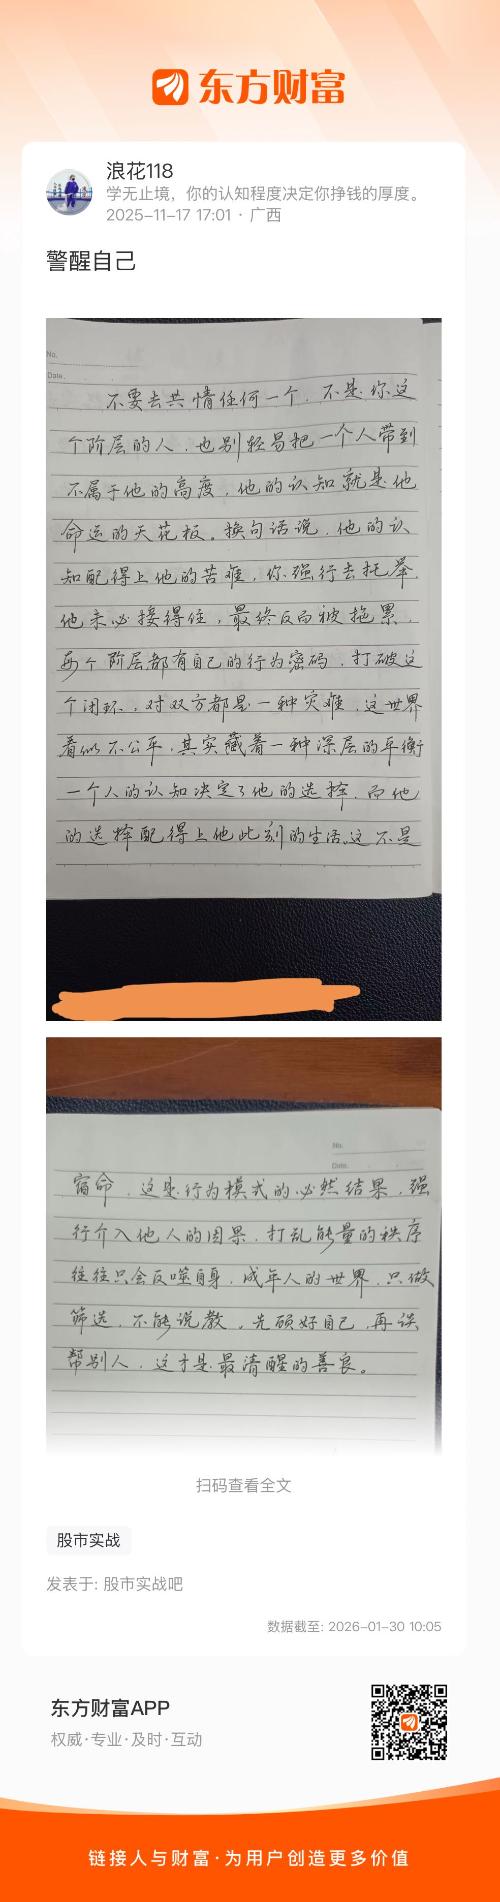 东方财富
浪花118
学无止境，你的认知程度决定你挣钱的厚度。
2025-11-17 17:01 · 广西
警醒自己
No.
Date.
不要去共情任何一个，不是你这
个阶层的人，也别轻易把一个人带到
不属于他的高度，他的认知就是他
命运的天花板。换句话说，他的认
知配得上他的苦难，你强行去托举，
他未必接得住，最终反而被拖累，
每个阶层都有自己的行为密码，打破这
个闭环，对双方都是一种灾难，这世界
看似不公平，其实藏着一种深层的平衡
一个人的认知决定了他的选择，而他
的选择配得上他此刻的生活。这不是
No.
Date.
宿命，这是行为模式的必然结果，强
行介入他人的因果，打乱能量的秩序
往往只会反噬自身，成年人的世界，只做
筛选，不能说教，先顾好自己，再谈
帮别人，这才是最清醒的善良。
扫码查看全文
股市实战
发表于: 股市实战吧
数据截至: 2026-01-30 10:05
东方财富APP
权威·专业·及时·互动
链接人与财富·为用户创造更多价值